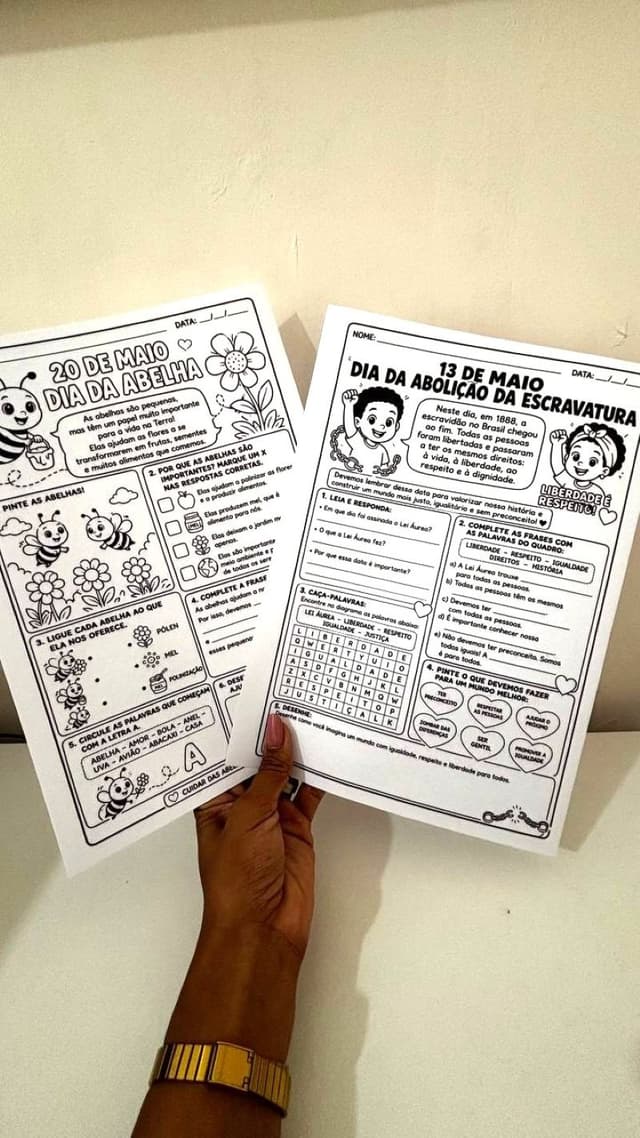 DATA: __/__/__
20 DE MAIO
DIA DA ABELHA
As abelhas são pequenas,
mas têm um papel muito importante
para a vida na Terra!
Elas ajudam as flores a se
transformarem em frutas, sementes
e muitos alimentos que comemos.
PINTE AS ABELHAS!
2. POR QUE AS ABELHAS SÃO
IMPORTANTES? MARQUE UM X
NAS RESPOSTAS CORRETAS.
Elas ajudam a polinizar as flores
e a produzir alimentos.
Elas produzem mel, que é
alimento para nós.
Elas deixam o jardim
apenas.
Elas são importantes
meio ambiente e
de todos os
3. LIGUE CADA ABELHA AO QUE
ELA NOS OFERECE.
PÓLEN
MEL
POLINIZAÇÃO
4. COMPLETE A FRASE
As abelhas ajudam a
Por isso, devemos
esses pequenos
5. CIRCULE AS PALAVRAS QUE COMEÇAM
COM A LETRA A.
ABELHA - AMOR - BOLA - ANEL -
UVA - AVIÃO - ABACAXI - CASA
A
6.
CUIDAR DAS
NOME:
DATA: __/__/__
13 DE MAIO
DIA DA ABOLIÇÃO DA ESCRAVATURA
Neste dia, em 1888, a
escravidão no Brasil chegou
ao fim. Todas as pessoas
foram libertadas e passaram
a ter os mesmos direitos:
à vida, à liberdade, ao
respeito e à dignidade.
LIBERDADE E
RESPEITO!
Devemos lembrar dessa data para valorizar nossa história e
construir um mundo mais justo, igualitário e sem preconceito!
1. LEIA E RESPONDA:
• Em que dia foi assinada a Lei Áurea?
• O que a Lei Áurea fez?
• Por que essa data é importante?
2. COMPLETE AS FRASES COM
AS PALAVRAS DO QUADRO:
LIBERDADE - RESPEITO - IGUALDADE
DIREITOS - HISTÓRIA
a) A Lei Áurea trouxe
para todas as pessoas.
b) Todas as pessoas têm os mesmos
c) Devemos ter
com todas as pessoas.
d) É importante conhecer nossa
e) Não devemos ter preconceito. Somos
todos iguais! A
é para todos.
3. CAÇA-PALAVRAS:
Encontre no diagrama as palavras abaixo:
LEI ÁUREA - LIBERDADE - RESPEITO
IGUALDADE - JUSTIÇA
L I B E R D A D E
Q W E R T Y U I O
I G U A L D A D E
A S D F G H J K L
Z X C V B N M Q W
R E S P E I T O P
J U S T I Ç A L K
4. PINTE O QUE DEVEMOS FAZER
PARA UM MUNDO MELHOR:
TER
PRECONCEITO
RESPEITAR
AS PESSOAS
AJUDAR O
PRÓXIMO
ZOMBAR DAS
DIFERENÇAS
SER
GENTIL
PROMOVER A
IGUALDADE
5. DESENHE:
Desenhe como você imagina um mundo com igualdade, respeito e liberdade para todos.